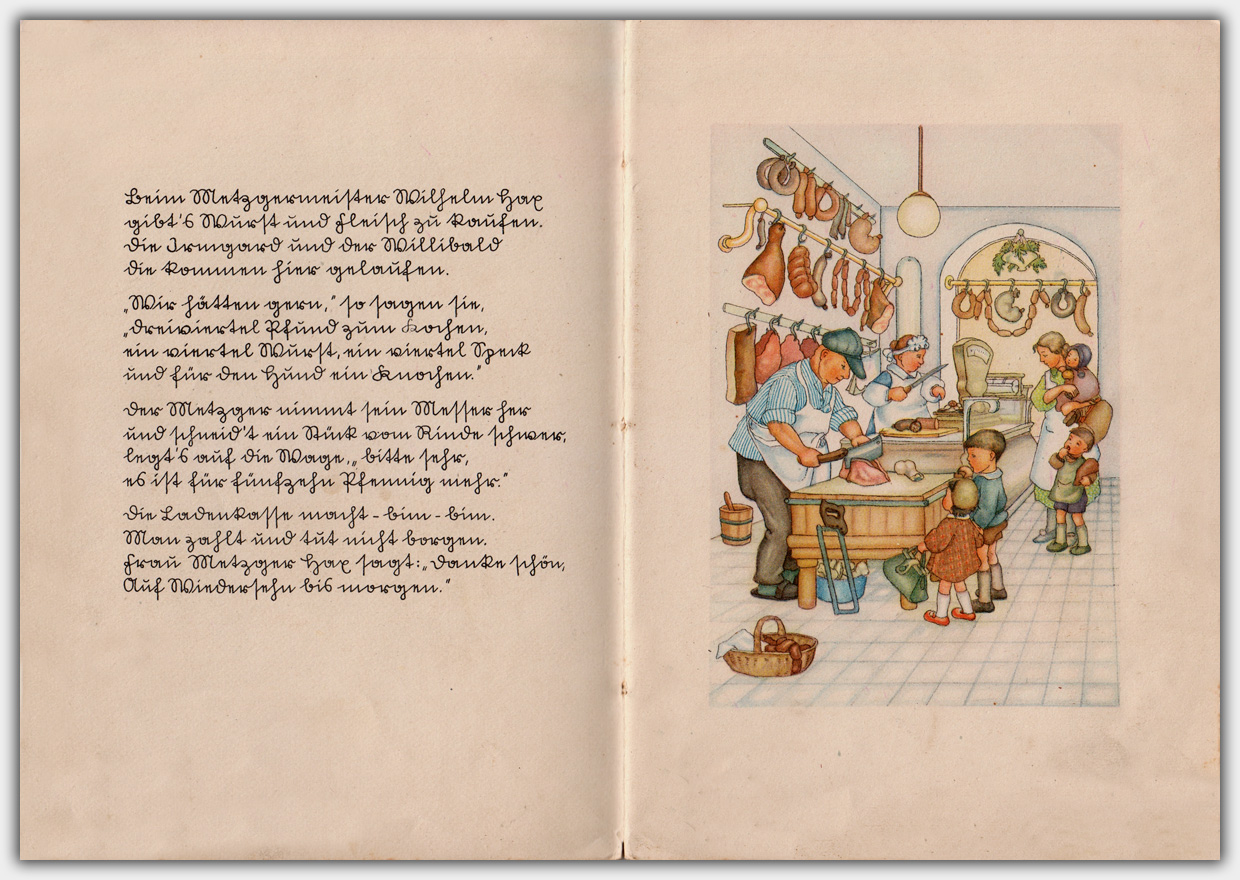 Beim Metzgermeister Wilhelm Hax
gibt's Wurst und Fleisch zu kaufen.
Die Irmgard und der Willibald
die kommen hier gelaufen.
„Wir hätten gern,“ so sagen sie,
„dreiviertel Pfund zum Kochen,
ein viertel Wurst, ein viertel Speck
und für den Hund ein Knochen.“
Der Metzger nimmt sein Messer her
und schneid't ein Stück vom Rinde schwer,
legt's auf die Wage, „bitte sehr,
es ist für fünfzehn Pfennig mehr.“
Die Ladenkasse macht - bim - bim.
Man zahlt und tut nicht borgen.
Frau Metzger Hax sagt: „Danke schön,
Auf Wiedersehn bis morgen.“